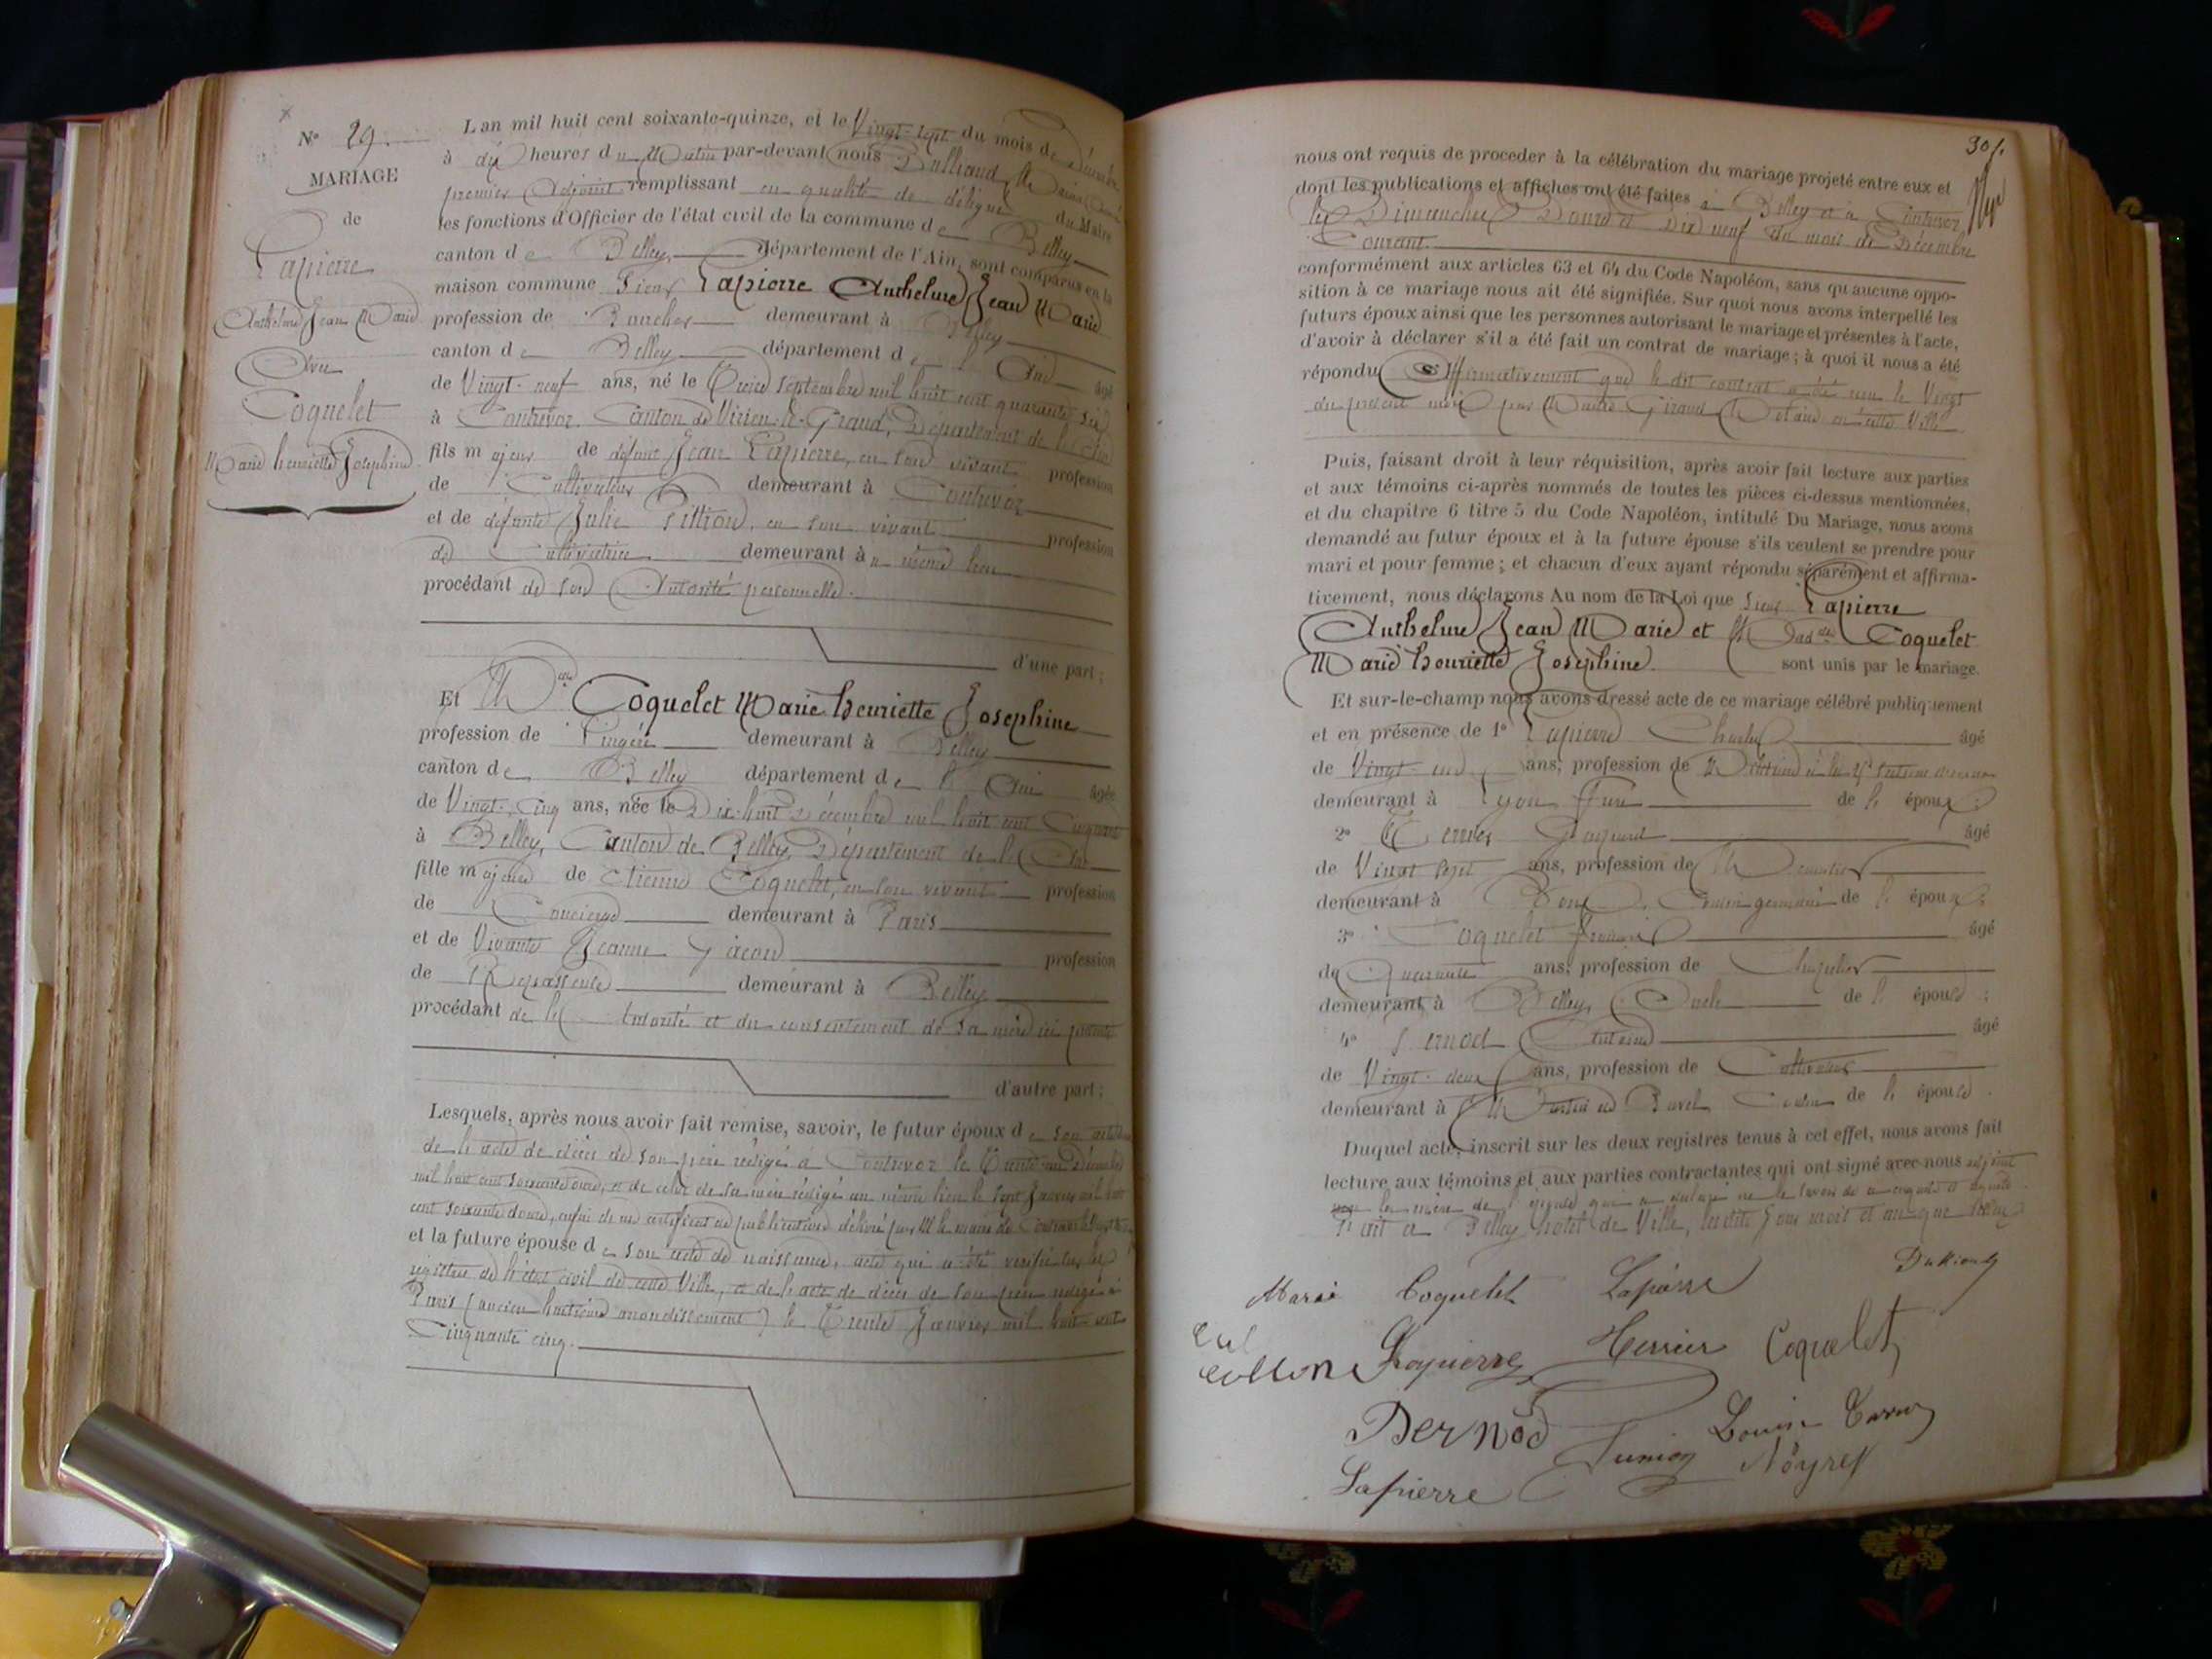 N° 29.
MARIAGE
de
Lapierre
Anthelme Jean Marie
Avec
Coquelet
Marie henriette Josephine
L'an mil huit cent soixante-quinze, et le Vingt-sept du mois de Décembre
à dix heures du Matin par-devant nous
premier Adjoint remplissant en qualité de délégué du Maire
les fonctions d'Officier de l'état civil de la commune de Belley
canton de Belley département de l'Ain, sont comparus en la
maison commune Sieur Lapierre Anthelme Jean Marie
profession de Boucher demeurant à Belley
canton de Belley département de l'Ain âgé
de Vingt-neuf ans, né le Treize septembre mil huit cent quarante six
à Contrevoz, Canton de Virieu-le-Grand, Département de l'Ain
fils majeur de défunt Jean Lapierre, en son vivant profession
de Cultivateur demeurant à Contrevoz
et de défunte Julie en son vivant profession
de Cultivatrice demeurant à même lieu
procédant de son Autorité personnelle.
d'une part;
Et Coquelet Marie henriette Josephine
profession de Lingère demeurant à Belley
canton de Belley département de l'Ain âgée
de Vingt-Cinq ans, née le Dix-huit Décembre mil huit cent Cinquante
à Belley, Canton de Belley Département de l'Ain
fille majeure de Etienne Coquelet, en son vivant profession
de Concierge demeurant à Paris
et de Vivante Jeanne profession
de Repasseuse demeurant à Belley
procédant de l'Autorité et du consentement de sa mère ici présente
d'autre part;
Lesquels, après nous avoir fait remise, savoir, le futur époux de son acte
de l'acte de décès de son père rédigé à Contrevoz le Trente un Décembre
mil huit cent soixante onze, et de celui de sa mère rédigé au même lieu le sept Janvier mil huit
cent soixante douze, enfin d'un certificat de publications délivré par M le maire de Contrevoz
et la future épouse de son acte de naissance, acte qui a été vérifié sur les
registres de l'état civil de cette Ville, et de l'acte de décès de son père rédigé à
Paris (ancien huitième arrondissement) le Trente Janvier mil huit cent
Cinquante cinq.
301.
nous ont requis de proceder à la célébration du mariage projeté entre eux et
dont les publications et affiches ont été faites à Belley et à Contrevoz
les Dimanches Douze et Dix neuf du mois de Décembre
Courant.
conformément aux articles 63 et 64 du Code Napoléon, sans qu'aucune oppo-
sition à ce mariage nous ait été signifiée. Sur quoi nous avons interpellé les
futurs époux ainsi que les personnes autorisant le mariage et présentes à l'acte,
d'avoir à déclarer s'il a été fait un contrat de mariage; à quoi il nous a été
répondu Affirmativement que le dit contrat a été reçu le Vingt
du présent mois par Maître Giraud Notaire en cette Ville
Puis, faisant droit à leur réquisition, après avoir fait lecture aux parties
et aux témoins ci-après nommés de toutes les pièces ci-dessus mentionnées,
et du chapitre 6 titre 5 du Code Napoléon, intitulé Du Mariage, nous avons
demandé au futur époux et à la future épouse s'ils veulent se prendre pour
mari et pour femme; et chacun d'eux ayant répondu séparément et affirma-
tivement, nous déclarons Au nom de la Loi que Sieur Lapierre
Anthelme Jean Marie et Coquelet
Marie henriette Josephine sont unis par le mariage.
Et sur-le-champ nous avons dressé acte de ce mariage célébré publiquement
et en présence de 1° Lapierre Charles âgé
de Vingt- ans, profession de
demeurant à Lyon frère de l'époux;
2° âgé
de Vingt sept ans, profession de
demeurant à Cousin germain de l'époux;
3° Coquelet François âgé
de Quarante ans, profession de Chapelier
demeurant à Belley, Oncle de l'épouse;
4° Antoine âgé
de Vingt-deux ans, profession de Cultivateur
demeurant à Cousin de l'épouse.
Duquel acte, inscrit sur les deux registres tenus à cet effet, nous avons fait
lecture aux témoins et aux parties contractantes qui ont signé avec nous
la mère de l'épouse qui a déclaré ne le savoir de ce enquise et requise
Fait à Belley hôtel de Ville, les dits Jour mois et an que dessus
Marie Coquelet Lapierre
Lapierre Coquelet
Bernod
Louise
Junion
Lapierre